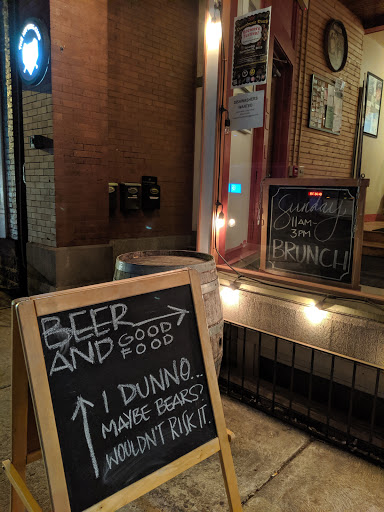 BEER
AND GOOD
FOOD
I DUNNO...
MAYBE BEARS?
WOULDN'T RISK IT.
Sunday
11AM
3PM
BRUNCH